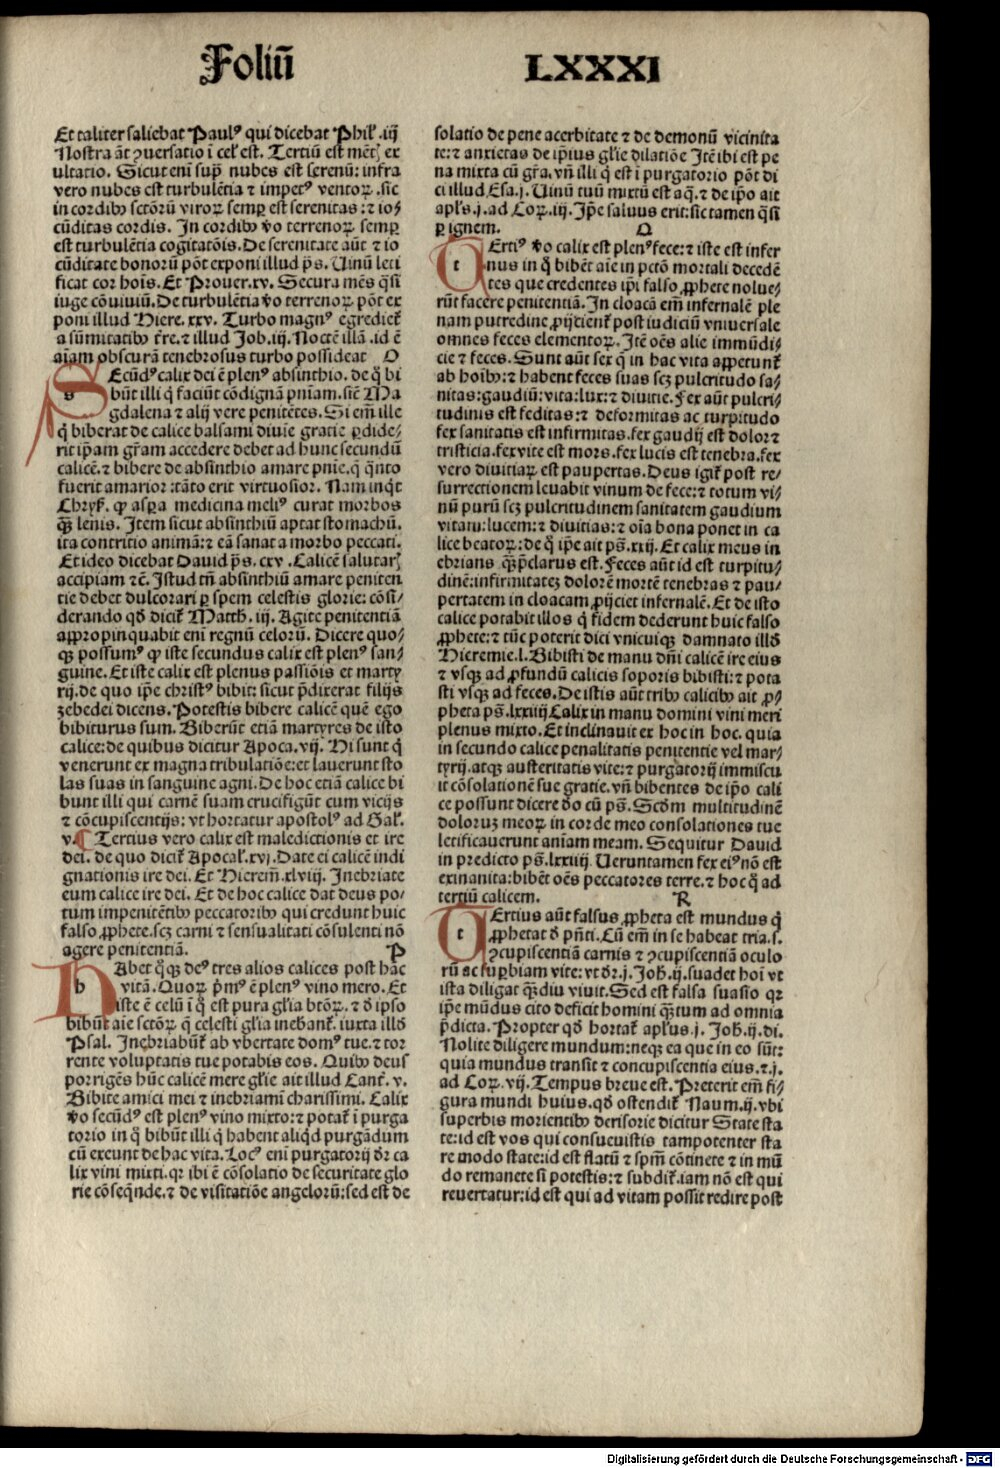 Foliū LXXXI
Et taliter saliebat Paulꝰ qui dicebat Phil'. iij
Nostra āt ꝯuersatio ī cel' est. Tertiū est mētꝭ ex
ultatio. Sicut eni sup̄ nubes est serenū: infra
vero nubes est turbulētia ⁊ impetꝰ ventoꝝ. sic
in cordibꝰ sctōrū viroꝝ semp̱ est serenitas: ⁊ io⸗
cūditas cordis. In cordibꝰ v̊o terrenoꝝ semp̱
est turbulētia cogitatōis. De serenitate aūt ⁊ io
cūditate bonorū pōt exponi illud ps̄. Uinū leti
ficat cor hoīs. Et Prouer. xv. Secura mēs q̄si
iuge cōuiuiū. De turbulētia v̊o terrenoꝝ pōt ex
poni illud Hiere. xxv. Turbo magnꝰ egrediet᷑
a sūmitatibꝰ t̄re. ⁊ illud Job. iij. Noctē illā .id ē
aīam obscurā tenebrosus turbo possideat O
SEcūdꝰ calix dei ē plenꝰ absinthio. de q̊ bi
būt illi q̇ faciūt cōdignā pnīam. sic̄ Ma
gdalena ⁊ alij vere penitētes. Si em̄ ille
q̇ biberat de calice balsami diuīe gratie ꝑdide⸗
rit ip̄am gr̄am accedere debet ad hunc secundū
calicē. ⁊ bibere de absinthio amare pnīe. q̇ q̄nto
fuerit amarior: tāto erit virtuosior. Nam inq̇t
Chrys̄. ꝙ asp̱a medicina meliꝰ curat morbos
q̄ꝫ lenis. Item sicut absinthiū aptat stomachū.
ita contritio animā: ⁊ eā sanat a morbo peccati.
Et ideo dicebat Dauid ps̄. cxv. Calicē salutarꝭ
accipiam ⁊c̄. Istud tn̄ absinthiū amare peniten
tie debet dulcorari ꝑ spem celestis glorie: cōsi⸗
derando qd̄ dicit᷑ Matth. iij. Agite penitentiā
appropinquabit eni regnū celorū. Dicere quo⸗
qꝫ possumꝰ ꝙ iste secundus calix est plenꝰ san⸗
guine. Et iste calix est plenus passiōis et marty
rij. de quo ip̄e christꝰ bibit: sicut p̄dixerat filijs
zebedei dicens. Potestis bibere calicē quē ego
bibiturus sum. Biberūt etiā martyres de isto
calice: de quibus dicitur Apoca. vij. Hi sunt q̇
venerunt ex magna tribulatiōe: et lauerunt sto
las suas in sanguine agni. De hoc etiā calice bi
bunt illi qui carnē suam crucifigūt cum vicijs
⁊ cōcupiscentijs: vt hortatur apostolꝰ ad Gal'.
v. Tertius vero calix est maledictionis et ire
dei. de quo dicit᷑ Apocal'. xvj. Date ei calicē indi
gnationis ire dei. Et Hierem̄. xlviij. Inebriate
eum calice ire dei. Et de hoc calice dat deus po⸗
tum impenitētibꝰ peccatoribꝰ qui credunt huic
falso ꝓphete. scꝫ carni ⁊ sensualitati cōsulenti nō
agere penitentiā. P
HAbet q̊qꝫ deꝰ tres alios calices post hāc
vitā. Quoꝝ p̄mꝰ ē plenꝰ vino mero. Et
iste ē celū ī q̊ est pura gl'ia btōꝝ. ⁊ d̄ ipso
bibūt aīe sctōꝝ q̄ celesti gl'ia inebriant᷑. iuxta illd̄
Psal. Inebriabūt᷑ ab vbertate domꝰ tue. ⁊ tor
rente voluptatis tue potabis eos. Quibꝰ deus
porrigēs hūc calicē mere gl'ie ait illud Cant̄. v.
Bibite amici mei ⁊ inebriamī charissimi. Calix
v̊o secūdꝰ est plenꝰ vino mixto: ⁊ potat᷑ ī purga
torio in q̊ bibūt illi q̇ habent aliqd̄ purgādum
cū exeunt de hac vita. Locꝰ eni purgatorij dr̄ ca
lix vini mixti. qr ibi ē cōsolatio de securitate glo
rie cōseq̄nde. ⁊ de visitatiōe angelorū: sed est de
solatio de pene acerbitate ⁊ de demonū vicinita
te: ⁊ anxietas de ip̄ius gl'ie dilatiōe Itē ibi est pe
na mixta cū gr̄a. vn̄ illi q̇ est ī purgatorio pōt di
ci illud Esa. j. Uinū tuū mixtū est aq̄. ⁊ de ip̄o ait
apl's. j. ad Coꝝ. iij. Ip̄e saluus erit: sic tamen q̄si
ꝑ ignem. Q
TErtiꝰ v̊o calix est plenꝰ fece: ⁊ iste est infer
nus in q̊ bibēt aīe in pctō mortali decedē
tes que credentes ip̄i falso ꝓphete nolue⸗
rūt facere penitentiā. In cloacā em̄ infernalē ple
nam putredine ꝓijcient᷑ post iudiciū vniuersale
omnes feces elementoꝝ. Itē oēs alie immūdi⸗
cie ⁊ feces. Sunt aūt sex q̄ in hac vita appetunt᷑
ab hoībꝰ: ⁊ habent feces suas scꝫ pulcritudo sa⸗
nitas: gaudiū: vita: lux: ⁊ diuitie. Fex aūt pulcri⸗
tudinis est feditas: ⁊ deformitas ac turpitudo
fex sanitatis est infirmitas. fex gaudij est dolor ⁊
tristicia. fex vite est mors. fex lucis est tenebra. fex
vero diuitiaꝝ est paupertas. Deus igit᷑ post re⸗
surrectionem leuabit vinum de fece: ⁊ totum vi⸗
nū purū scꝫ pulcritudinem sanitatem gaudium
vitam: lucem: ⁊ diuitias: ⁊ oīa bona ponet in ca
lice beatoꝝ: de q̊ ip̄e ait ps̄. xxij. Et calix meus in
ebrians q̄ꝫ p̄clarus est. Feces aūt id est turpitu⸗
dinē: infirmitateꝫ dolorē mortē tenebras ⁊ pau⸗
pertatem in cloacam ꝓijciet infernalē. Et de isto
calice potabit illos q̇ fidem dederunt huic falso
ꝓphete: ⁊ tūc poterit dici vnicuiqꝫ damnato illd̄
Hieremie. l. Bibisti de manu dn̄i calicē ire eius
⁊ vsqꝫ ad ꝓfundū calicis soporis bibisti: ⁊ pota
sti vsqꝫ ad feces. De istis aūt tribꝰ calicibꝰ ait ꝓ⸗
pheta ps̄. lxxiiij Calix in manu domini vini meri
plenus mixto. Et inclinauit ex hoc in hoc. quia
in secundo calice penalitatis penitentie vel mar⸗
tyrij. atqꝫ austeritatis vite: ⁊ purgatorij immiscu
it cōsolationē sue gratie. vn̄ bibentes de ip̄o cali
ce possunt dicere d̄o cū ps̄. Scdm̄ multitudinē
doloruꝫ meoꝝ in corde meo consolationes tue
letificauerunt aniam meam. Sequitur Dauid
in predicto ps̄. lxxiiij. Ueruntamen fex eiꝰ nō est
exinanita: bibēt oēs peccatores terre. ⁊ hoc q̊ ad
tertiū calicem. R
TErtius aūt falsus ꝓpheta est mundus q̇
ꝓphetat d̄ pn̄ti. Cū em̄ in se habeat tria. s.
ꝯcupiscentiā carnis ⁊ ꝯcupiscentiā oculo
rū ac suꝑbiam vite: vt dr̄. j. Joh̄. ij. suadet hoī vt
ista diligat q̄ꝫdiu viuit. Sed est falsa suasio qr
ip̄e mūdus cito deficit homini q̄ꝫtum ad omnia
p̄dicta. Propter qd̄ hortat᷑ apl'us. j. Joh̄. ij. di.
Nolite diligere mundum: neqꝫ ea que in eo sūt:
quia mundus transit ⁊ concupiscentia eius. ⁊. j.
ad Coꝝ. vij. Tempus breue est. Preterit em̄ fi⸗
gura mundi huius. qd̄ ostendit᷑ Naum. ij. vbi
superbis morientibꝰ derisorie dicitur State sta
te: id est vos qui consueuistis tam potenter sta
re modo state: id est flatū ⁊ spm̄ cōtinete ⁊ in mū
do remanete si potestis: ⁊ subdit᷑. iam nō est qui
reuertatur: id est qui ad vitam possit redire post
Digitalisierung gefördert durch die Deutsche Forschungsgemeinschaft - DFG